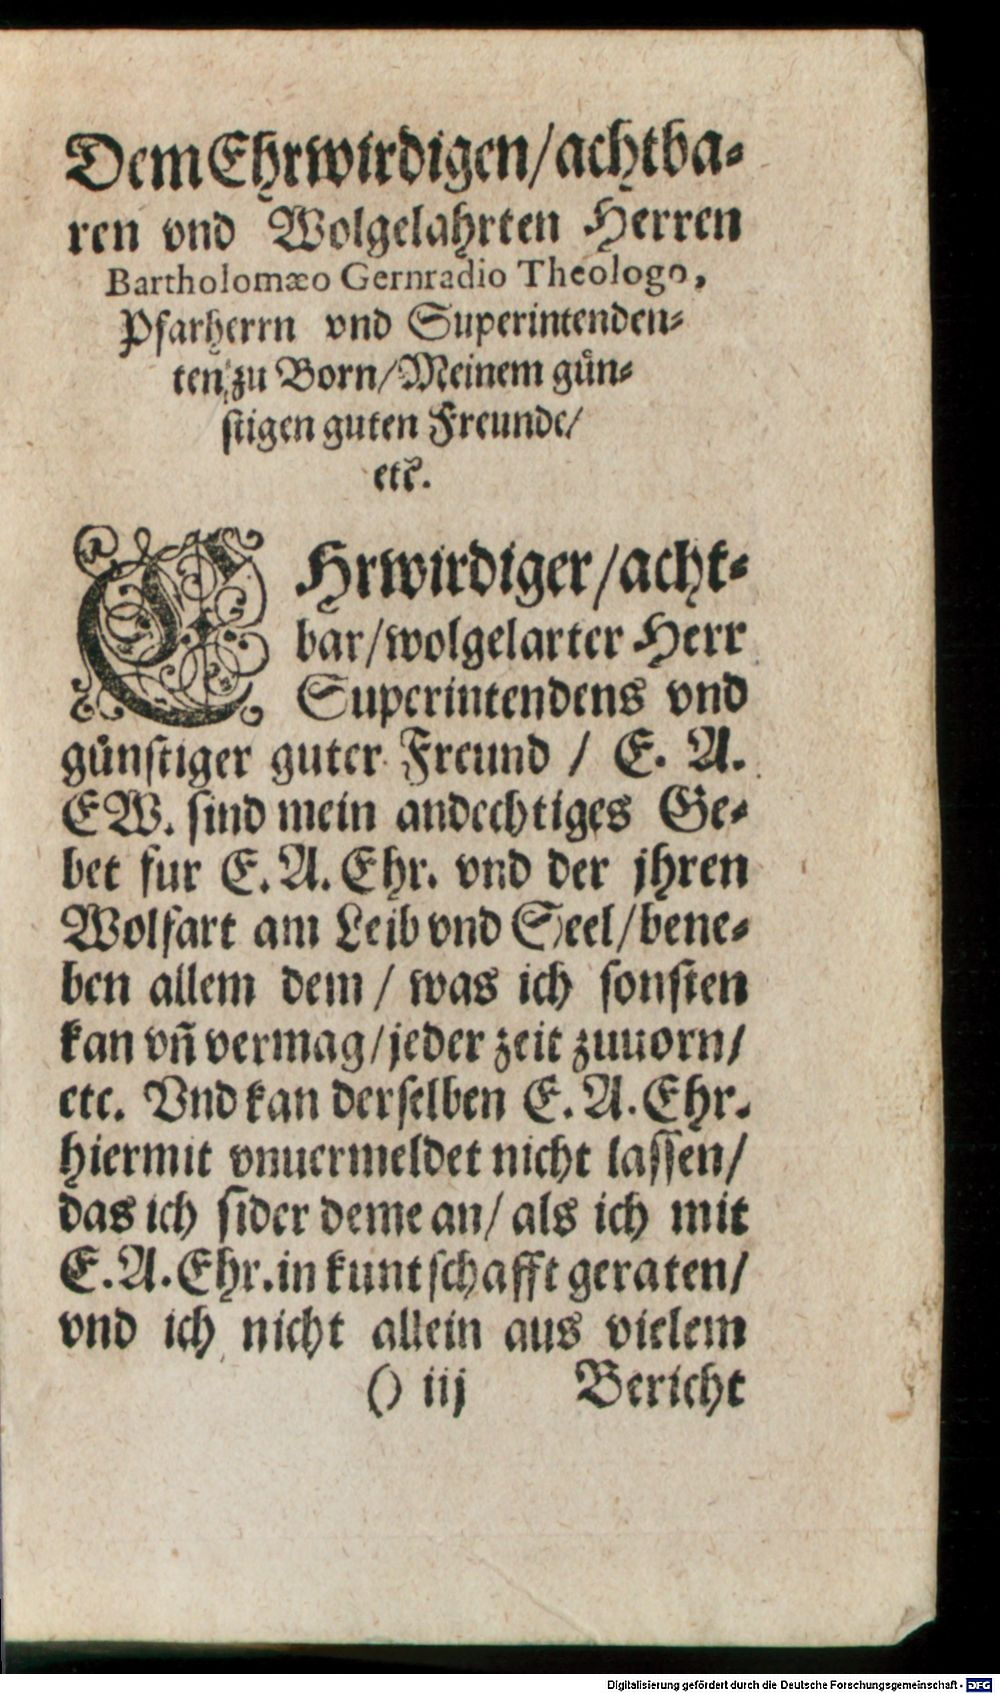 Dem Ehrwirdigen/achtba-
ren vnd Wolgelahrten Herren
Bartholomæo Gernradio Theologo,
Pfarherrn vnd Superintenden-
ten zu Born/Meinem gůn-
stigen guten Freunde/
etc.
EHrwirdiger/acht-
bar/wolgelarter Herr
Superintendens vnd
gůnstiger guter Freund / E. A.
EW. sind mein andechtiges Ge-
bet fur E. A. Ehr. vnd der jhren
Wolfart am Leib vnd Seel/bene-
ben allem dem / was ich sonsten
kan vñ vermag/jeder zeit zuuorn/
etc. Vnd kan derselben E. A. Ehr.
hiermit vnuermeldet nicht lassen/
das ich sider deme an/ als ich mit
E. A. Ehr. in kuntschafft geraten/
vnd ich nicht allein aus vielem
() iij Bericht
Digitalisierung gefördert durch die Deutsche Forschungsgemeinschaft - DFG